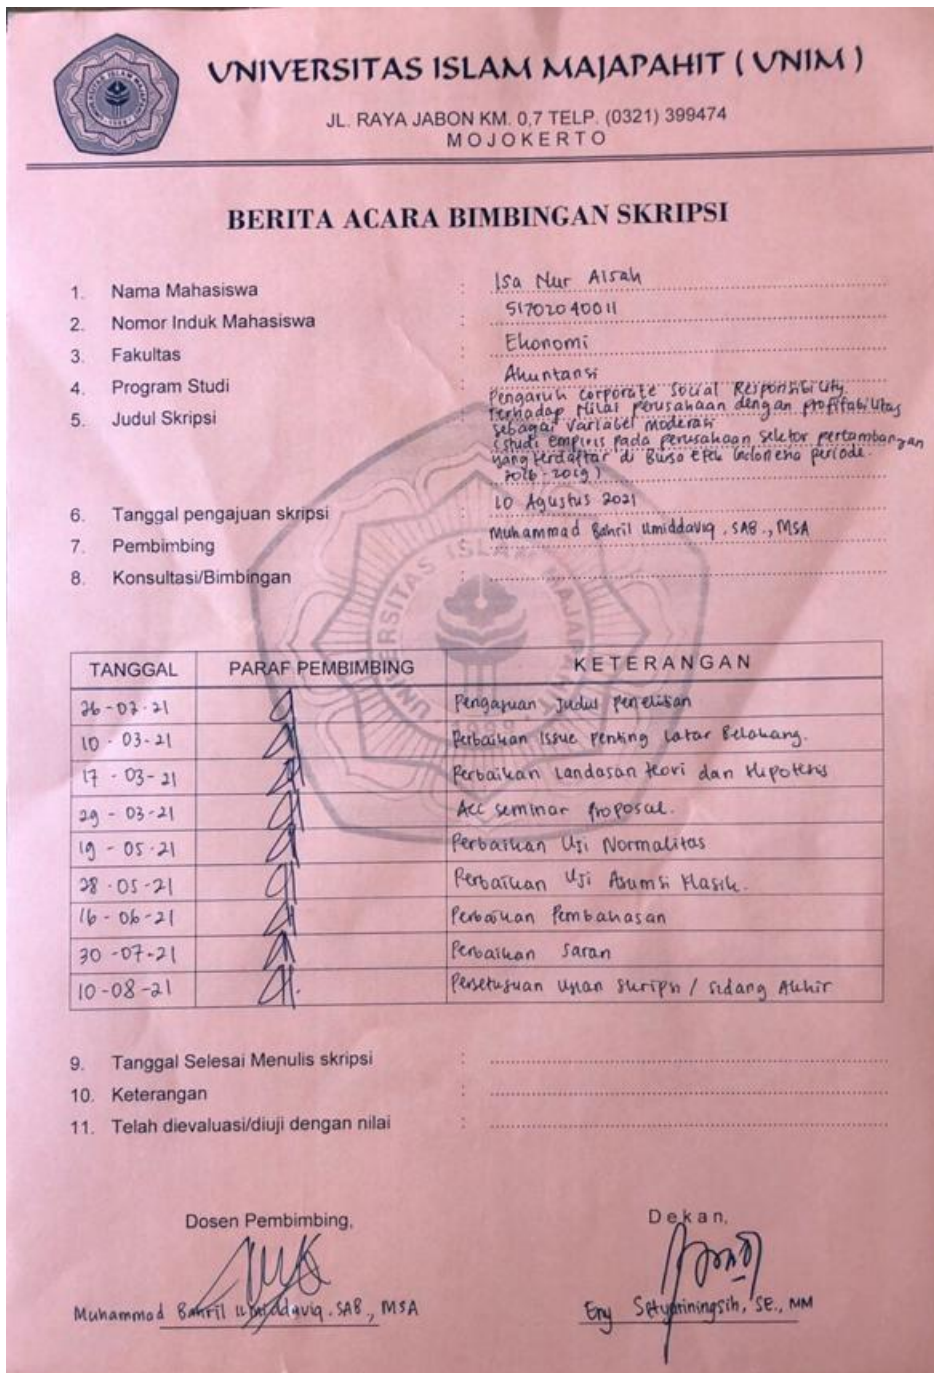 UNIVERSITAS ISLAM MAJAPAHIT ( UNIM )
JL. RAYA JABON KM. 0,7 TELP. (0321) 399474
MOJOKERTO
BERITA ACARA BIMBINGAN SKRIPSI
1. Nama Mahasiswa : Isa Nur Aisah
2. Nomor Induk Mahasiswa : 51702040011
3. Fakultas : Ekonomi
4. Program Studi : Akuntansi
5. Judul Skripsi : Pengaruh Corporate Social Responsibility
terhadap Nilai perusahaan dengan profitabilitas
sebagai variabel moderasi
(Studi empiris pada perusahaan Sektor pertambangan
yang terdaftar di Bursa Efek Indonesia periode
2016-2019)
6. Tanggal pengajuan skripsi : 10 Agustus 2021
7. Pembimbing : Muhammad Bahril Umiddaviq . SAB ., MSA
8. Konsultasi/Bimbingan :
TANGGAL PARAF PEMBIMBING KETERANGAN
26-02-21 Pengajuan Judul Penelitian
10 - 03-21 Perbaikan Issue penting Latar Belakang.
17 - 03-21 Perbaikan Landasan teori dan Hipotesis
29 - 03-21 Acc seminar proposal.
19 - 05-21 Perbaikan Uji Normalitas
28 - 05-21 Perbaikan Uji Asumsi Klasik.
16 - 06-21 Perbaikan Pembahasan
30 -07-21 Perbaikan Saran
10-08-21 Persetujuan Ujian Skripsi / Sidang Akhir
9. Tanggal Selesai Menulis skripsi :
10. Keterangan :
11. Telah dievaluasi/diuji dengan nilai :
Dosen Pembimbing, Dekan,
Muhammad Bahril Umiddaviq . SAB ., MSA Eny Setyariningsih, SE., MM